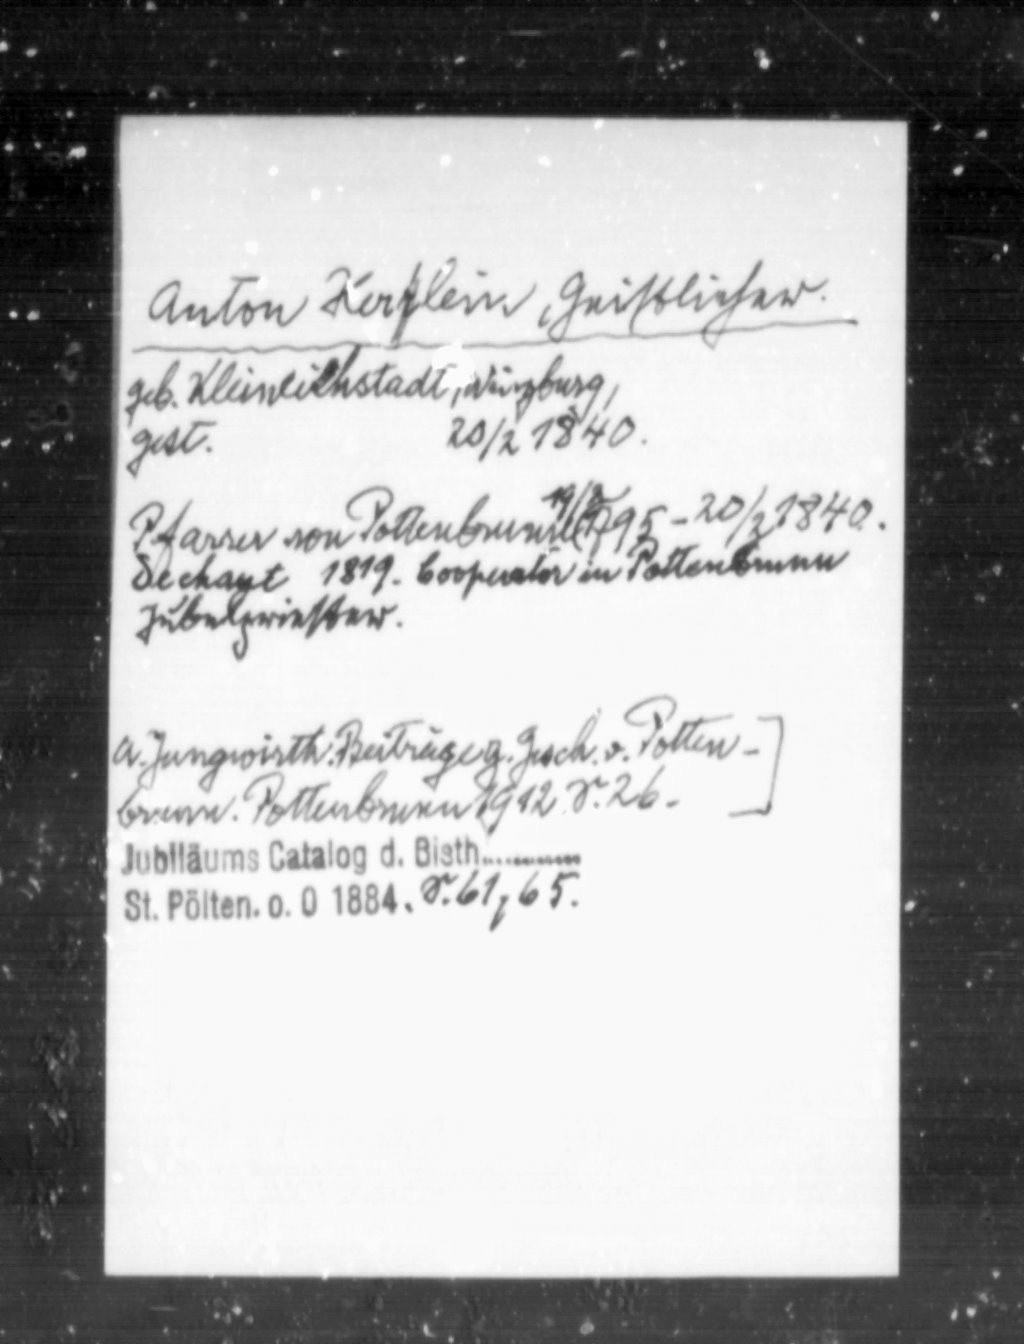 Anton Kerplein, Geistlicher.
geb. Kleineichstadt, Würzburg,
gest. 20/2 1840.
Pfarrer von Pottenbrunn 1795 - 20/2 1840.
Dechant 1819. Cooperator in Pottenbrunn
Jubelpriester.
A. Jungwirth: Beiträge z. Gesch. v. Potten-
brunn. Pottenbrunn 1912. S. 26. ]
Jubiläums Catalog d. Bisth...........
St. Pölten. o. O 1884. S. 61, 65.